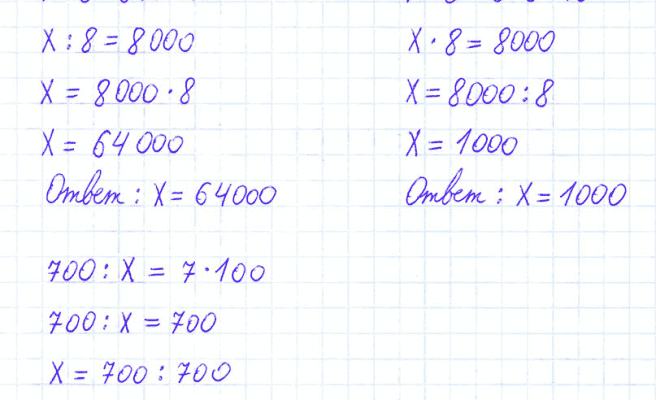 X : 8 = 8000
X = 8000 · 8
X = 64000
Ответ : X = 64000
X · 8 = 8000
X = 8000 : 8
X = 1000
Ответ : X = 1000
700 : X = 7 · 100
700 : X = 700
X = 700 : 700